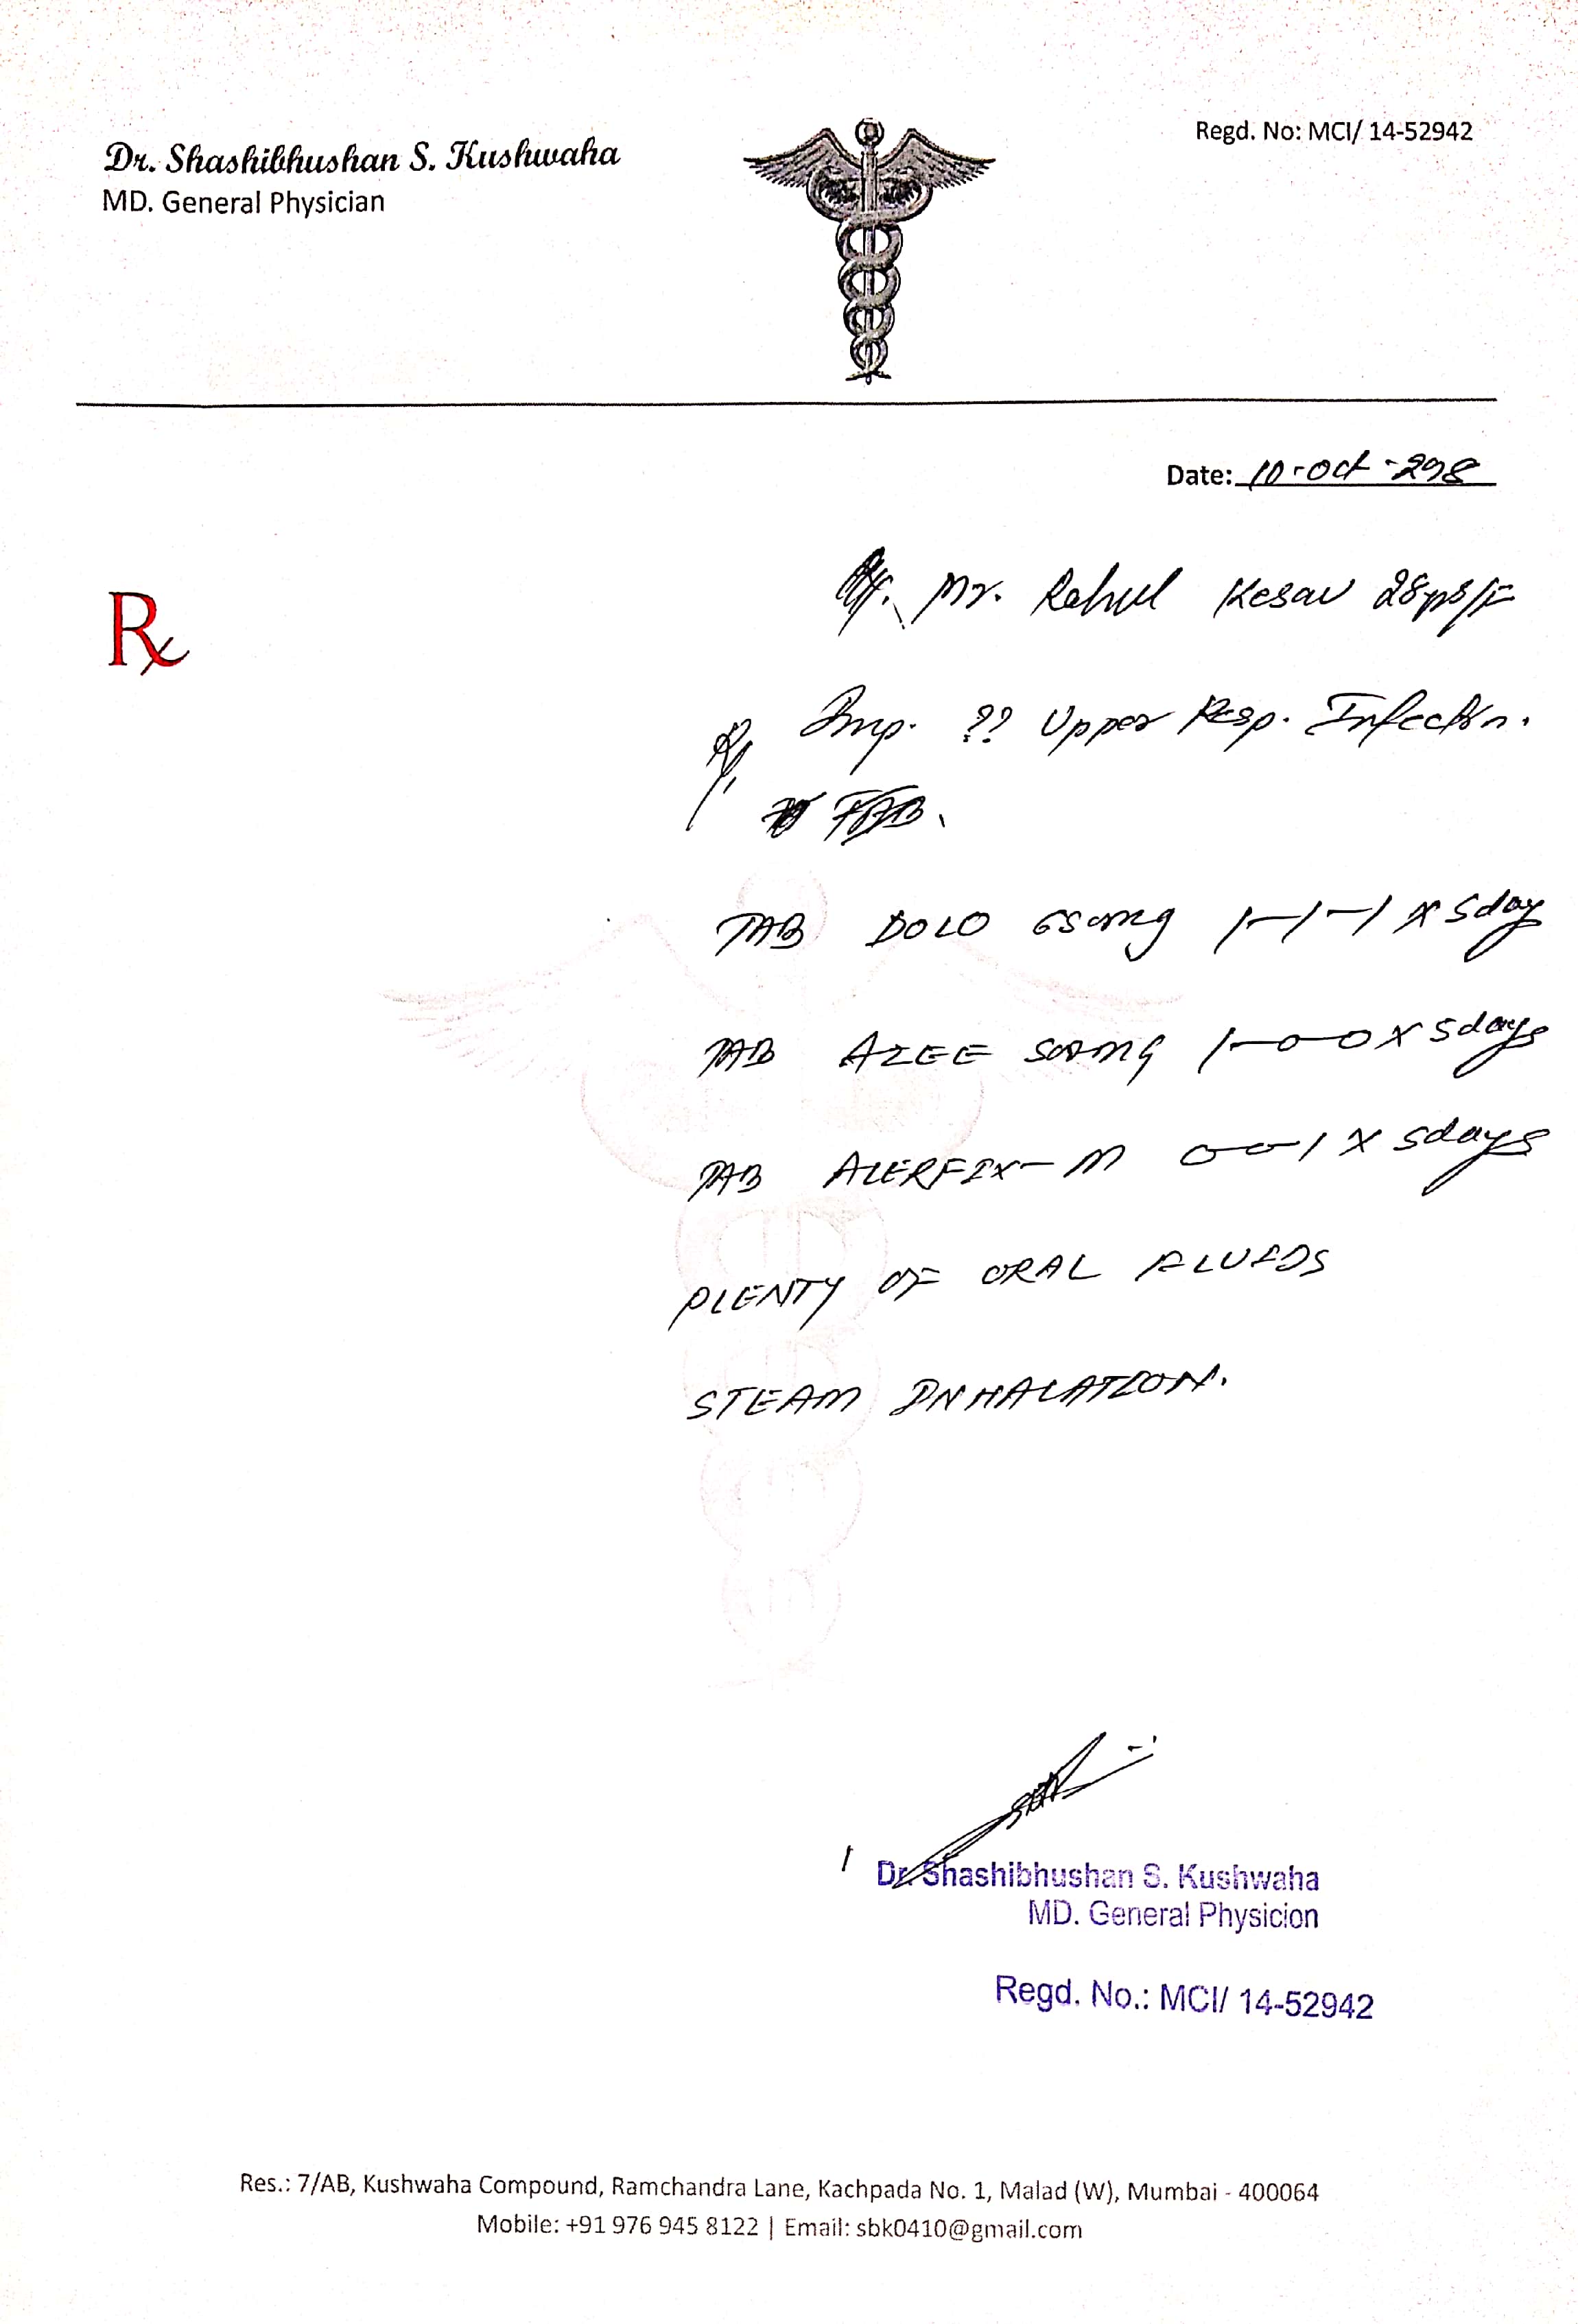 Dr. Shashibhushan S. Kushwaha
MD. General Physician
Regd. No: MCI/ 14-52942
Date: 10-Oct-298
Rx
Mr. Rahul Kesav
Imp. ?? Upper Resp. Infection.
TAB DOLO 650mg 1-1-1 x 5day
TAB AZEE 500mg 1-0-0 x 5days
TAB ALERFIX-M 0-0-1 x 5days
PLENTY OF ORAL FLUIDS
STEAM INHALATION.
Dr. Shashibhushan S. Kushwaha
MD. General Physicion
Regd. No.: MCI/ 14-52942
Res.: 7/AB, Kushwaha Compound, Ramchandra Lane, Kachpada No. 1, Malad (W), Mumbai - 400064
Mobile: +91 976 945 8122 | Email: sbk0410@gmail.com